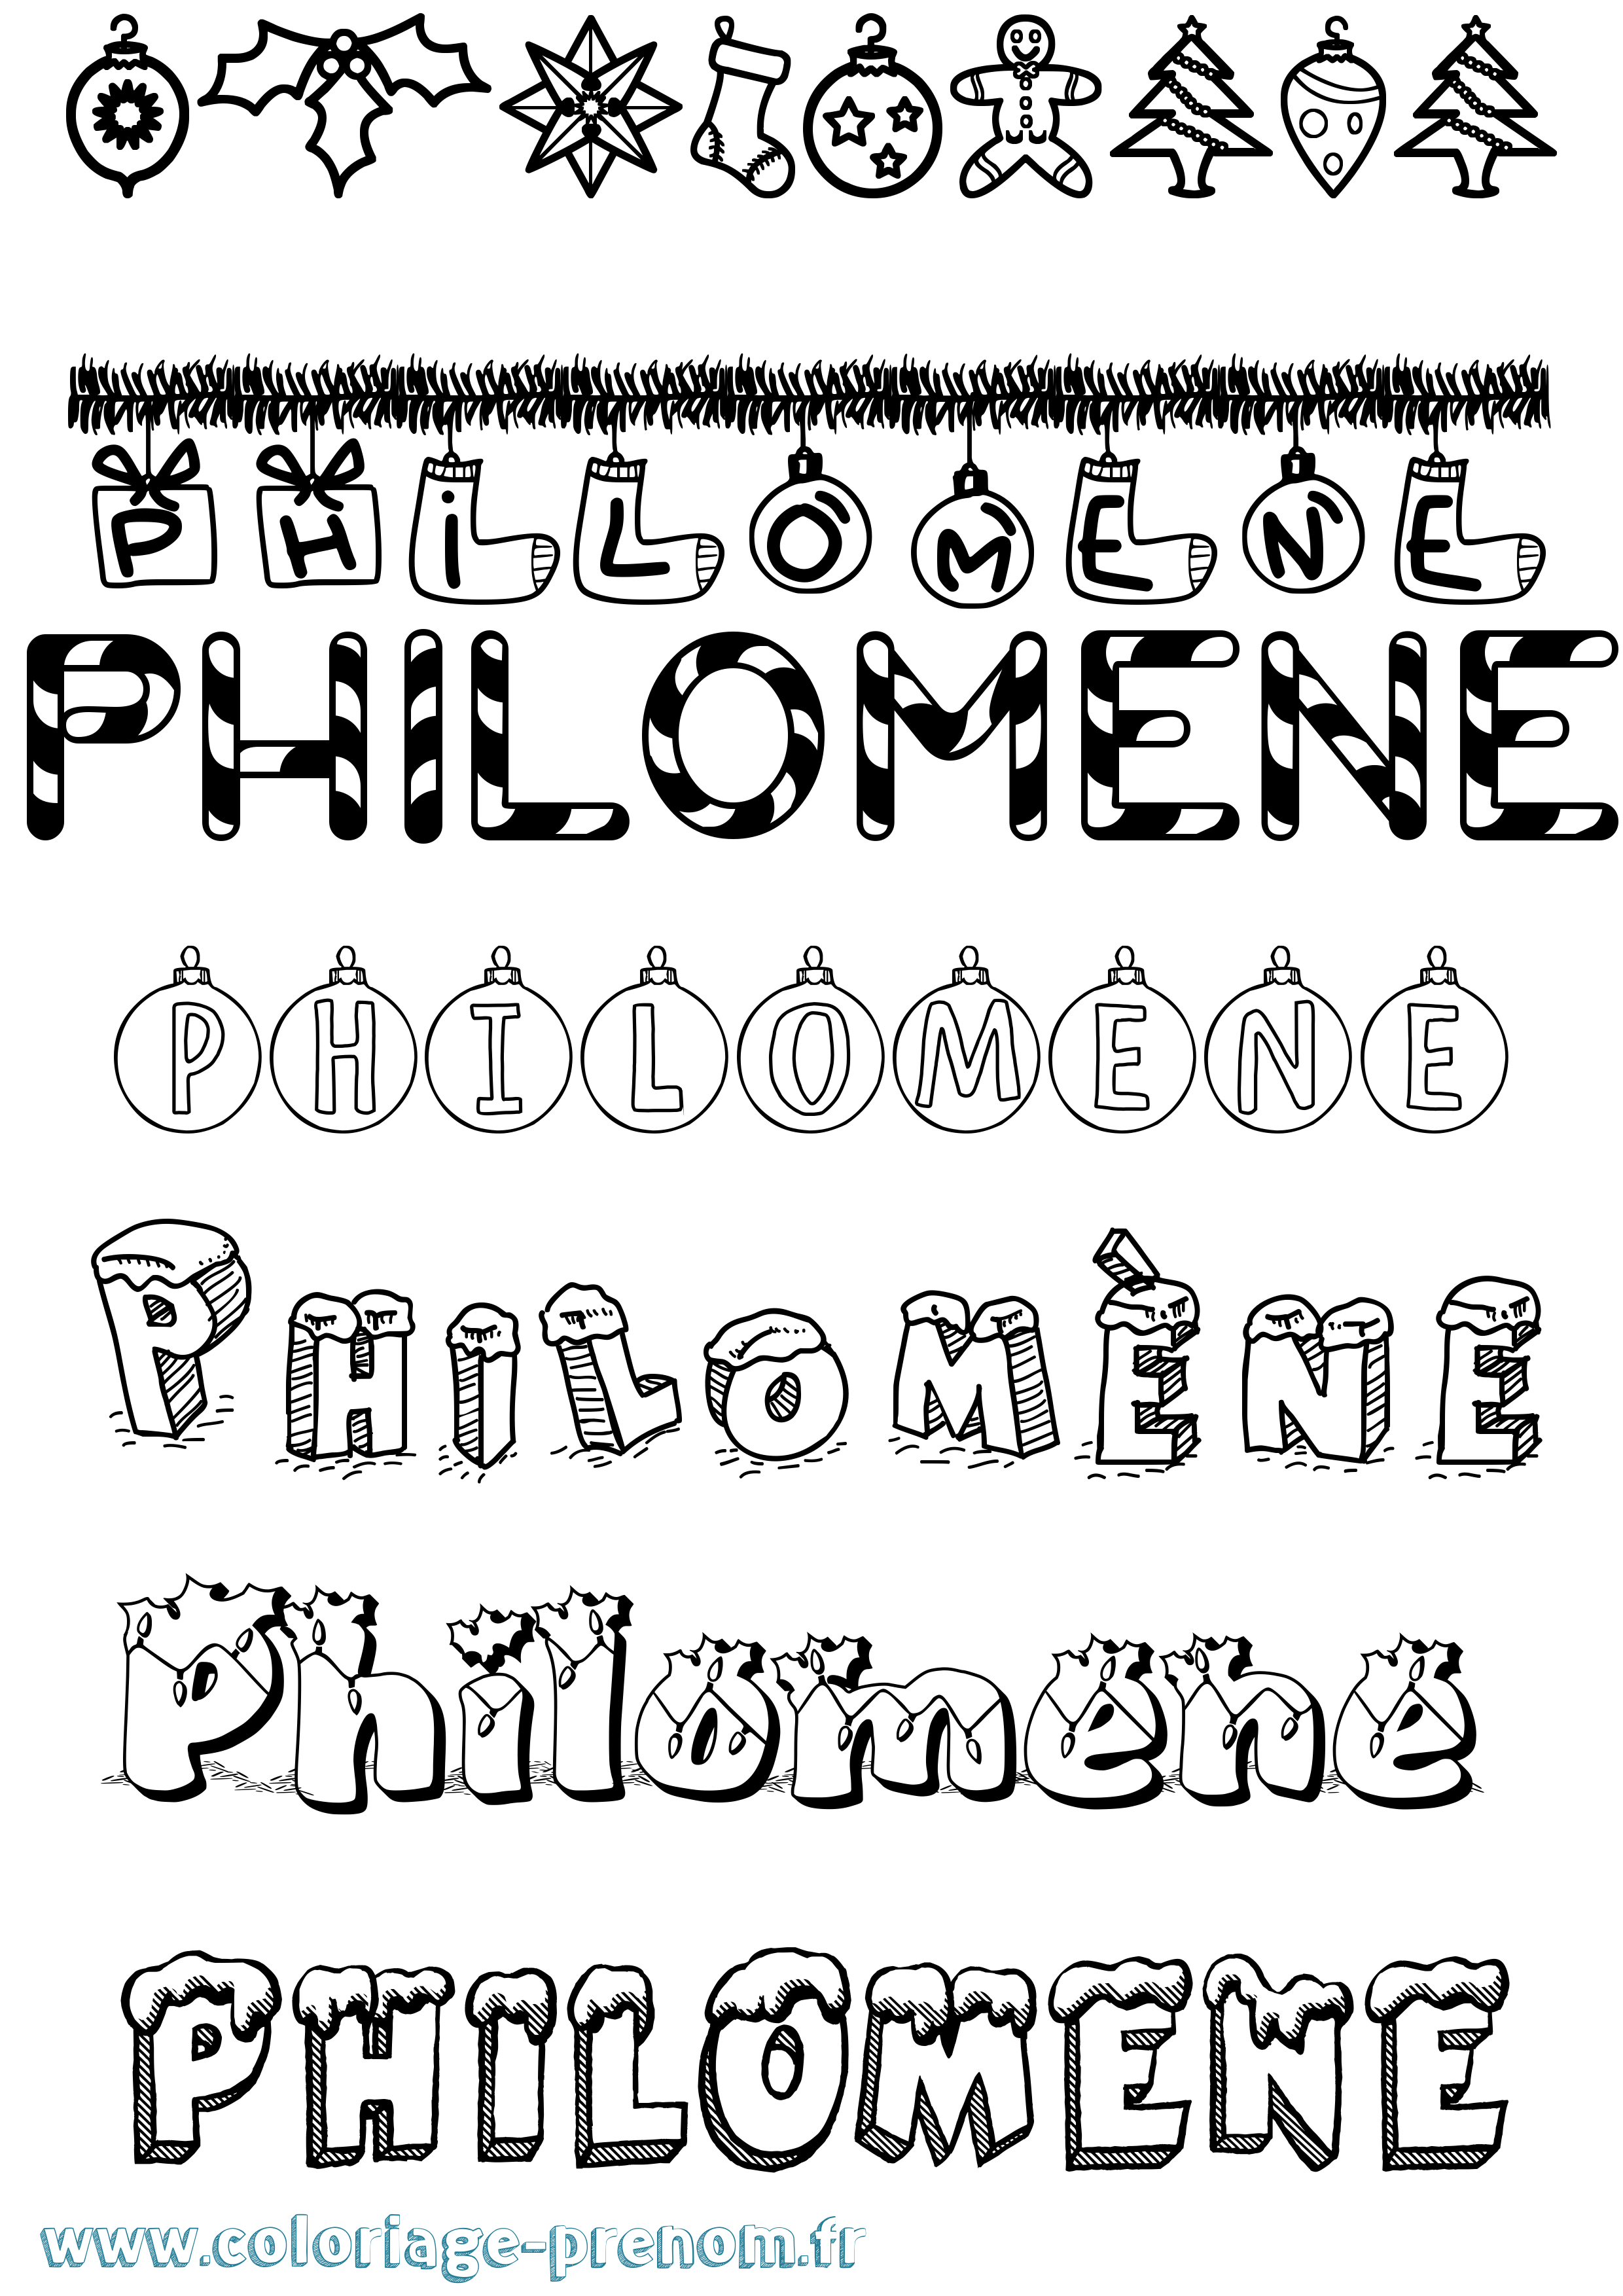 PHiLOMENE
PHILOMENE
PHILOMENE
PHILOMÈNE
Philomene
PHILOMENE
www.coloriage-prenom.fr